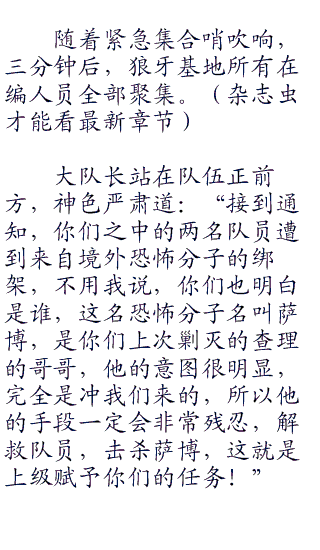 随着紧急集合哨吹响，
三分钟后，狼牙基地所有在
编人员全部聚集。（杂志虫
才能看最新章节）
大队长站在队伍正前
方，神色严肃道：“接到通
知，你们之中的两名队员遭
到来自境外恐怖分子的绑
架，不用我说，你们也明白
是谁，这名恐怖分子名叫萨
博，是你们上次剿灭的查理
的哥哥，他的意图很明显，
完全是冲我们来的，所以他
的手段一定会非常残忍，解
救队员，去杀萨博，这就是
上级赋予你们的任务！”